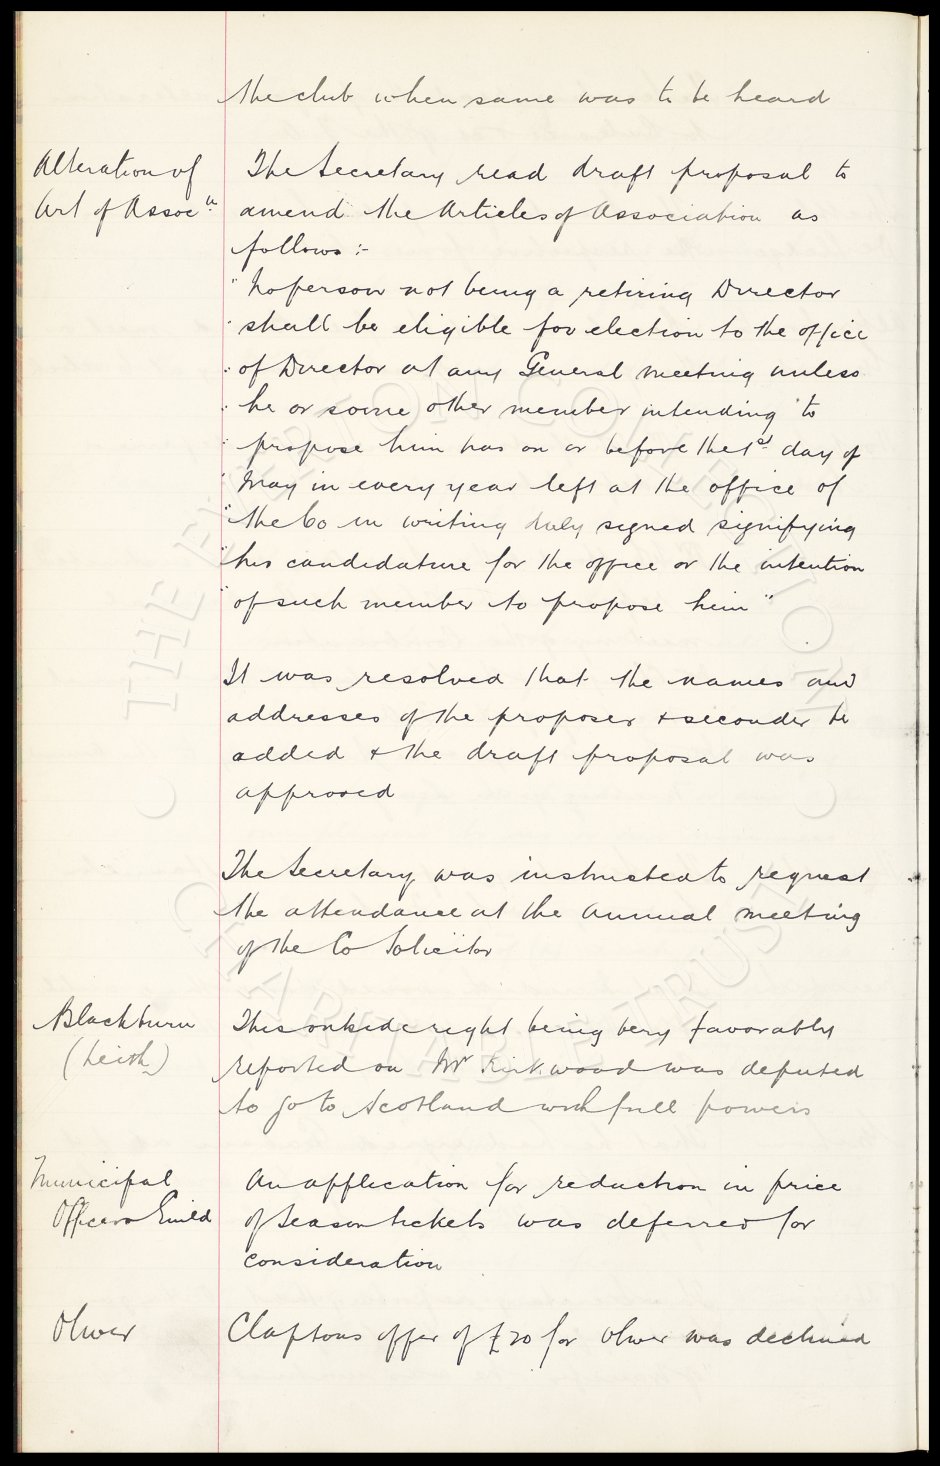 the club when same was to be heard
Alteration of
Art of Assocn
The Secretary read draft proposal to
amend the Articles of Association as
follows :-
" No person not being a retiring Director
" shall be eligible for election to the office
" of Director at any General meeting unless
" he or some other member intending to
" propose him has on or before the 1st day of
" May in every year left at the office of
" the Co in writing duly signed signifying
" his candidature for the office or the intention
" of such member to propose him "
It was resolved that the names and
addresses of the proposer & seconder be
added & the draft proposal was
approved
The Secretary was instructed to request
the attendance at the Annual meeting
of the Co Solicitor
Blackburn
(Leith)
This outside right being very favorably
reported on Mr Kirkwood was deputed
to go to Scotland with full powers
Municipal
Officers Guild
An application for reduction in price
of Season tickets was deferred for
consideration
Oliver
Claptons offer of £20 for Oliver was declined
© THE EVERTON COLLECTION ©
CHARITABLE TRUST